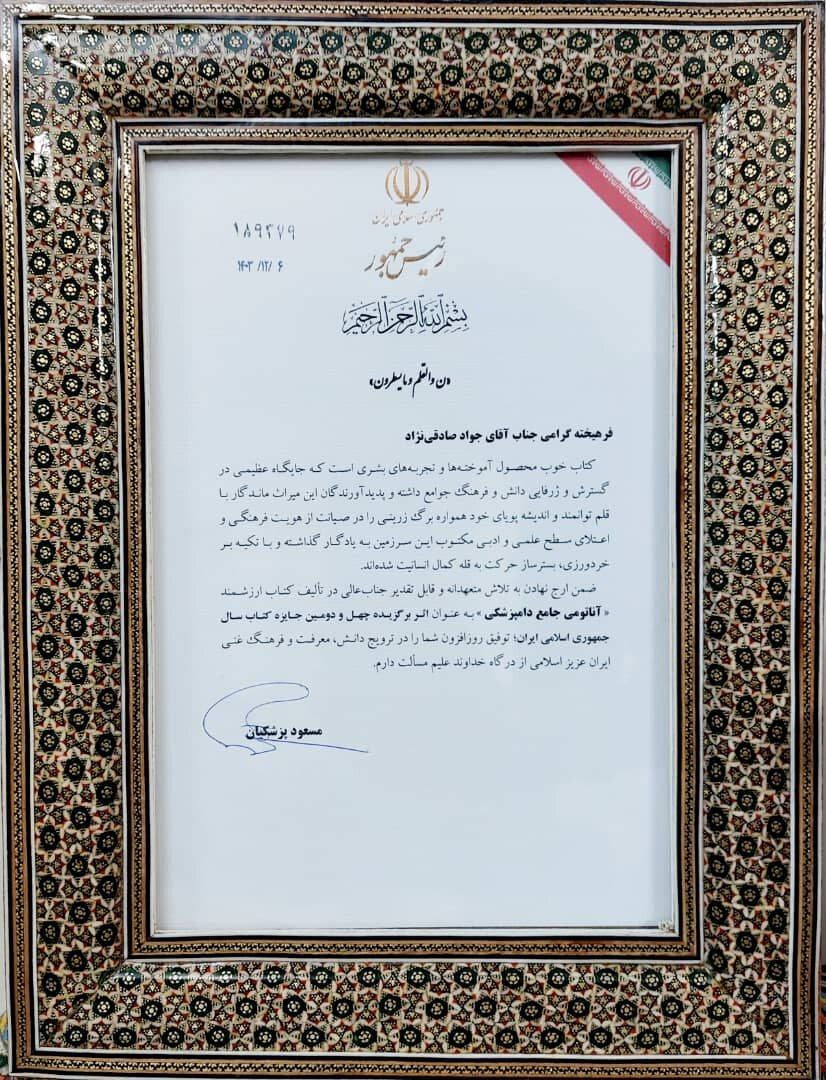 جمهوری اسلامی ایران
رئیس جمهور
۱۸۹۳۷۹
۱۴۰۳/۱۲/ ۶
بسم الله الرحمن الرحیم
«ن والقلم و ما یسطرون»
فرهیخته گرامی جناب آقای جواد صادقی‌نژاد
کتاب خوب محصول آموخته‌ها و تجربه‌های بشری است که جایگاه عظیمی در
گسترش و ژرفایی دانش و فرهنگ جوامع داشته و پدیدآورندگان این میراث ماندگار با
قلم توانمند و اندیشه پویای خود همواره برگ زرینی را در صیانت از هویت فرهنگی و
اعتلای سطح علمی و ادبی مکتوب این سرزمین به یادگار گذاشته و با تکیه بر
خردورزی، بسترساز حرکت به قله کمال انسانیت شده‌اند.
ضمن ارج نهادن به تلاش متعهدانه و قابل تقدیر جناب‌عالی در تألیف کتاب ارزشمند
« آناتومی جامع دامپزشکی » به عنوان اثر برگزیده چهل و دومین جایزه کتاب سال
جمهوری اسلامی ایران؛ توفیق روزافزون شما را در ترویج دانش، معرفت و فرهنگ غنی
ایران عزیز اسلامی از درگاه خداوند علیم مسألت دارم.
مسعود پزشکیان